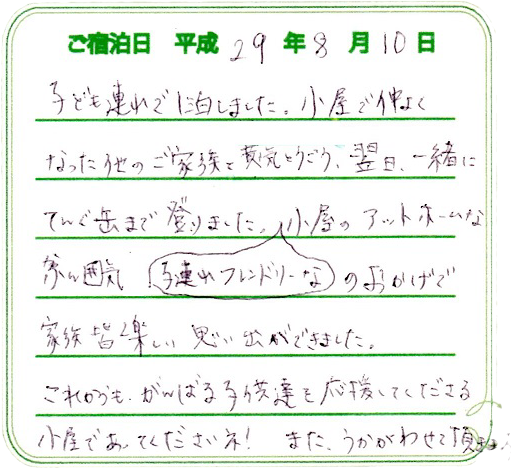 ご宿泊日 平成 29 年 8 月 10 日
子ども連れで1泊しました。小屋で仲よく
なった他のご家族と意気とうごう、翌日、一緒に
てんぐ岳まで登りました。小屋のアットホームな
雰囲気 子連れフレンドリーな のおかげで
家族皆楽しい思い出ができました。
これからも、がんばる子供達を応援してくださる
小屋であってくださいネ! また、うかがわせて頂きます